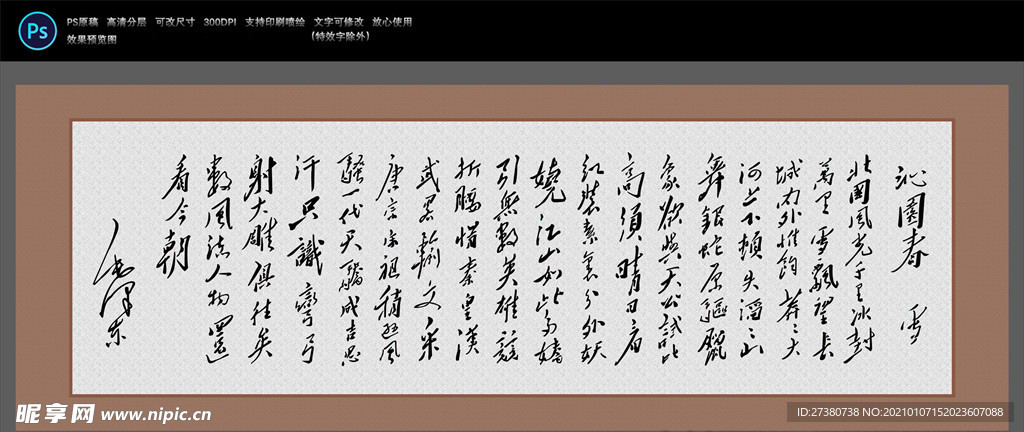 PS原稿 高清分层 可改尺寸 300DPI 支持印刷喷绘 文字可修改 放心使用
效果预览图 (特效字除外)
沁園春 雪
北國風光千里冰封
萬里雪飄望長
城内外惟餘莽〻大
河上下頓失滔〻山
舞銀蛇原驅臘
象欲與天公試比
高須晴日看
紅裝素裹分外妖
嬈江山如此多嬌
引無數英雄競
折腰惜秦皇漢
武畧輸文采
唐宗宋祖稍遜風
騷一代天驕成吉思
汗只識彎弓
射大雕俱往矣
數風流人物還
看今朝
毛澤東
昵享网 www.nipic.cn
ID:27380738 NO:20210107152023607088